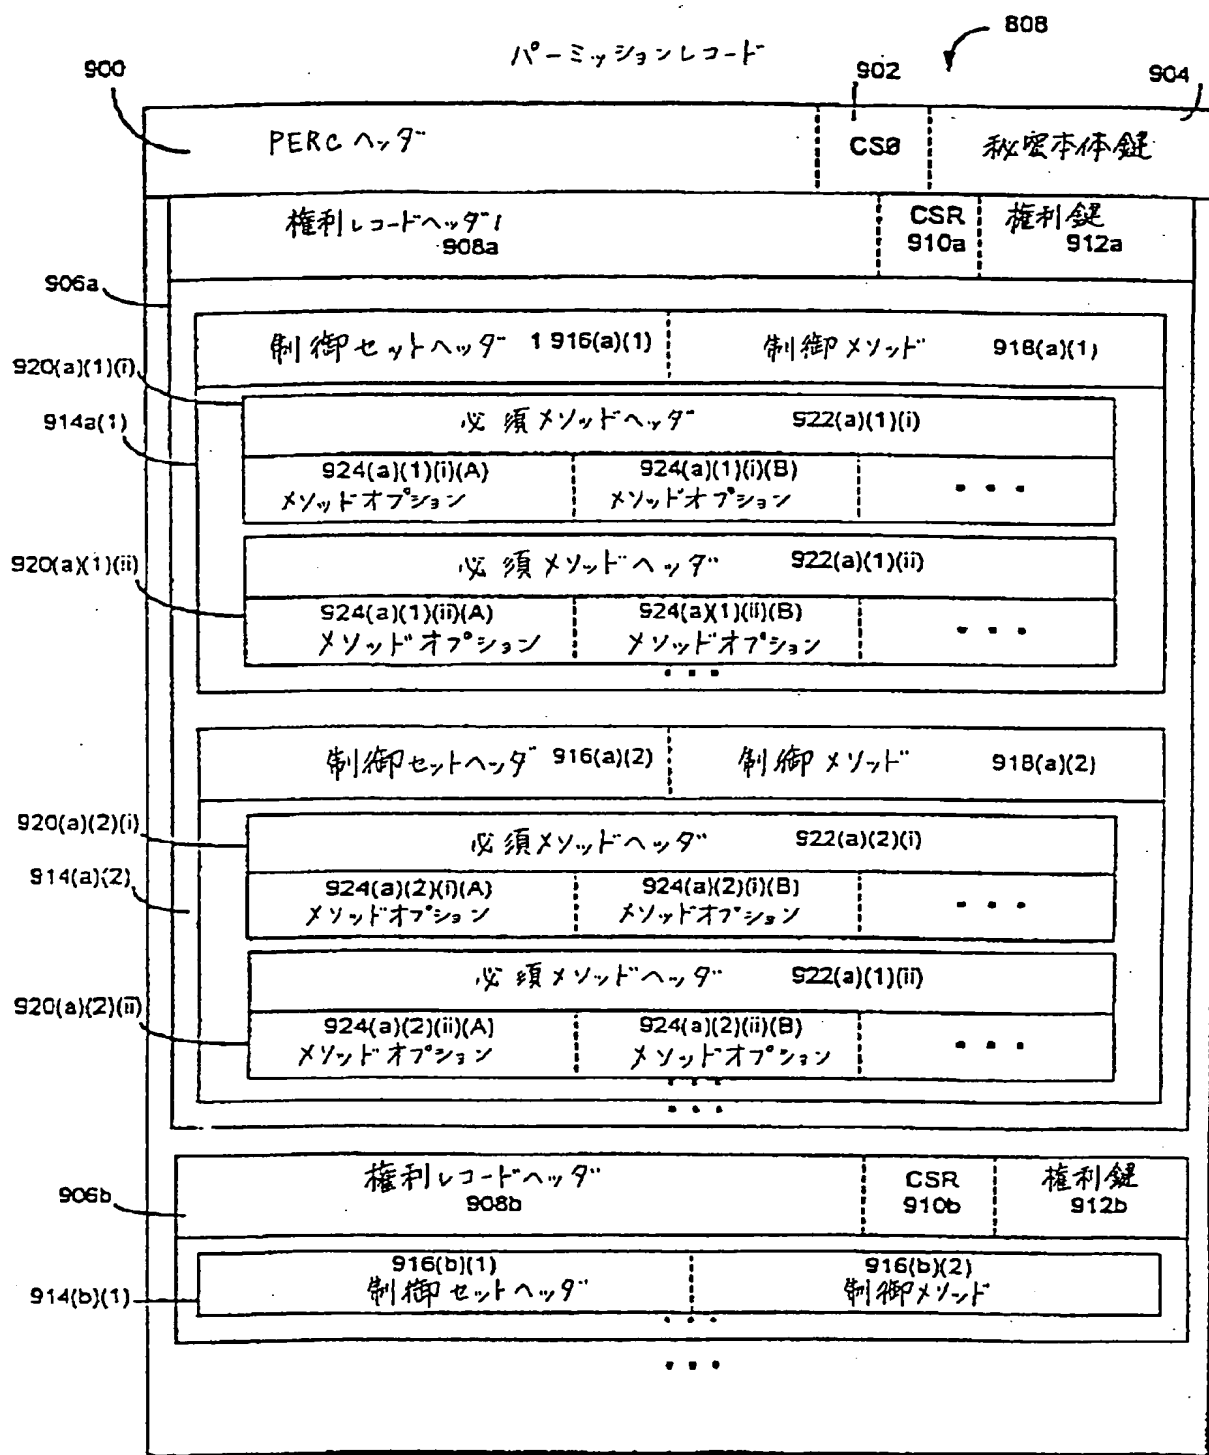 808
パーミッションレコード
900
902
904
PERCヘッダ
CS0
秘密本体鍵
権利レコードヘッダ1
908a
CSR
910a
権利鍵
912a
906a
制御セットヘッダ 1 916(a)(1)
制御メソッド 918(a)(1)
920(a)(1)(i)
必須メソッドヘッダ 922(a)(1)(i)
914a(1)
924(a)(1)(i)(A)
メソッドオプション
924(a)(1)(i)(B)
メソッドオプション
• • •
920(a)(1)(ii)
必須メソッドヘッダ 922(a)(1)(ii)
924(a)(1)(ii)(A)
メソッドオプション
924(a)(1)(ii)(B)
メソッドオプション
• • •
• • •
制御セットヘッダ 916(a)(2)
制御メソッド 918(a)(2)
920(a)(2)(i)
必須メソッドヘッダ 922(a)(2)(i)
914(a)(2)
924(a)(2)(i)(A)
メソッドオプション
924(a)(2)(i)(B)
メソッドオプション
• • •
920(a)(2)(ii)
必須メソッドヘッダ 922(a)(1)(ii)
924(a)(2)(ii)(A)
メソッドオプション
924(a)(2)(ii)(B)
メソッドオプション
• • •
• • •
• • •
906b
権利レコードヘッダ
908b
CSR
910b
権利鍵
912b
914(b)(1)
916(b)(1)
制御セットヘッダ
916(b)(2)
制御メソッド
• • •
• • •